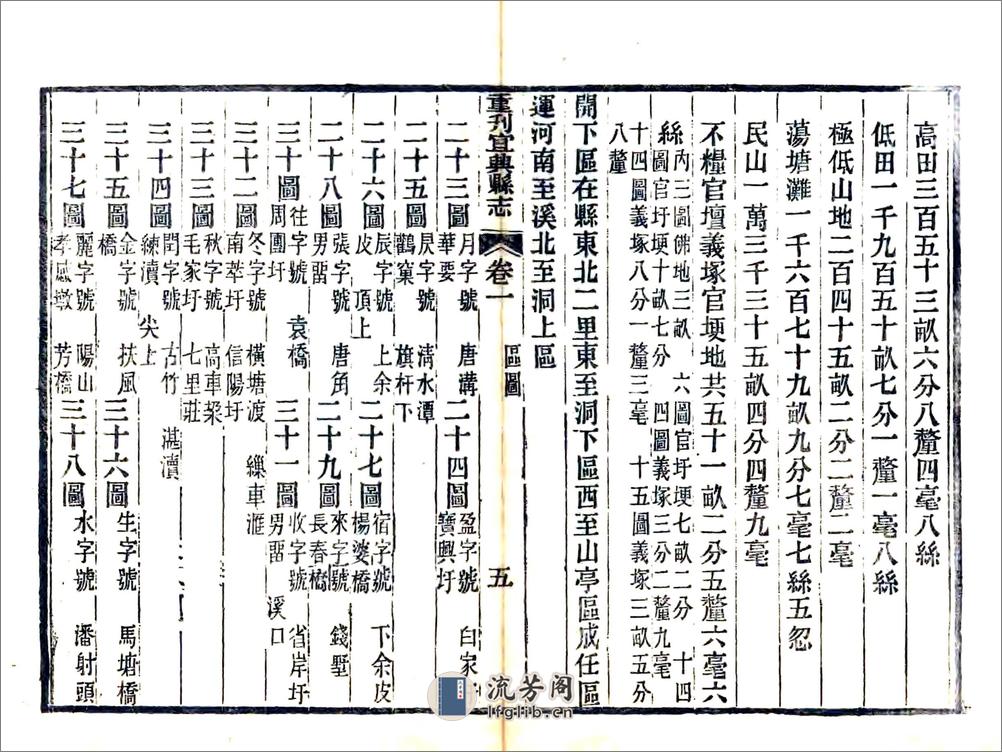 高田三百五十三畝六分八釐四毫八絲
低田一千九百五十畝七分一釐一毫八絲
極低山地二百四十五畝二分二釐二毫
蕩塘灘一千六百七十九畝九分七毫七絲五忽
民山一萬三千三十五畝四分四釐九毫
不糧官壇義塚官埂地共五十一畝二分五釐六毫六
絲內三圖佛地三畝　六圖官圩埂七畝二分　十四
圖官圩埂十畝七分　四圖義塚三分二釐九毫
十四圖義塚八分一釐三毫　十五圖義塚三畝五分
八釐
開下區在縣東北二里東至洞下區西至山亭區成任區
運河南至溪北至洞上區
重刊宜興縣志　卷一　區圖　五
二十三圖月字號　唐溝　華要　二十四圖盈字號　白家　寶興圩
二十五圖昃字號　淸水潭　鸛窠　旗杆下
二十六圖辰字號　上余皮　頂上　二十七圖宿字號　下余皮　楊婆橋
二十八圖張字號　唐角　男留　二十九圖來字號　錢墅　長春橋
三十圖往字號　袁橋　周圍圩　三十一圖收字號　省岸圩　男留　溪口
三十二圖冬字號　橫塘渡　繅車滙　南莘圩　信陽圩
三十三圖秋字號　高車梁　毛家圩　七里莊
三十四圖閏字號　古竹　湛瀆　練瀆　尖上
三十五圖金字號　扶風橋　三十六圖生字號　馬塘橋
三十七圖麗字號　陽山　孝感墩　芳橋　三十八圖水字號　潘射頭
流芳阁
lfglib.cn